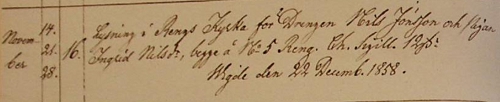 Novem
ber
14.
21.
28.
16.
Lysning i Rengs Kyrka för Drengen Nils Jönsson och Pigan
Ingrid Nilsdr, begge å No 5 Reng. Ch. Sigill. 12
Wigde den 22 Decemb. 1858.